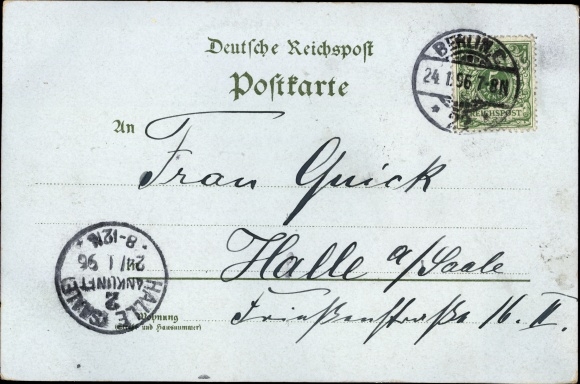 Deutsche Reichspost
Postkarte
BERLIN, C
24.1.96 7-8N
* 2
5
REICHSPOST
An
Frau Quick
Halle a/Saale
HALLE (SAALE)
2
ANKUNFT
24/1 96
8-12N
Wohnung
(Straße und Hausnummer)
16. II.